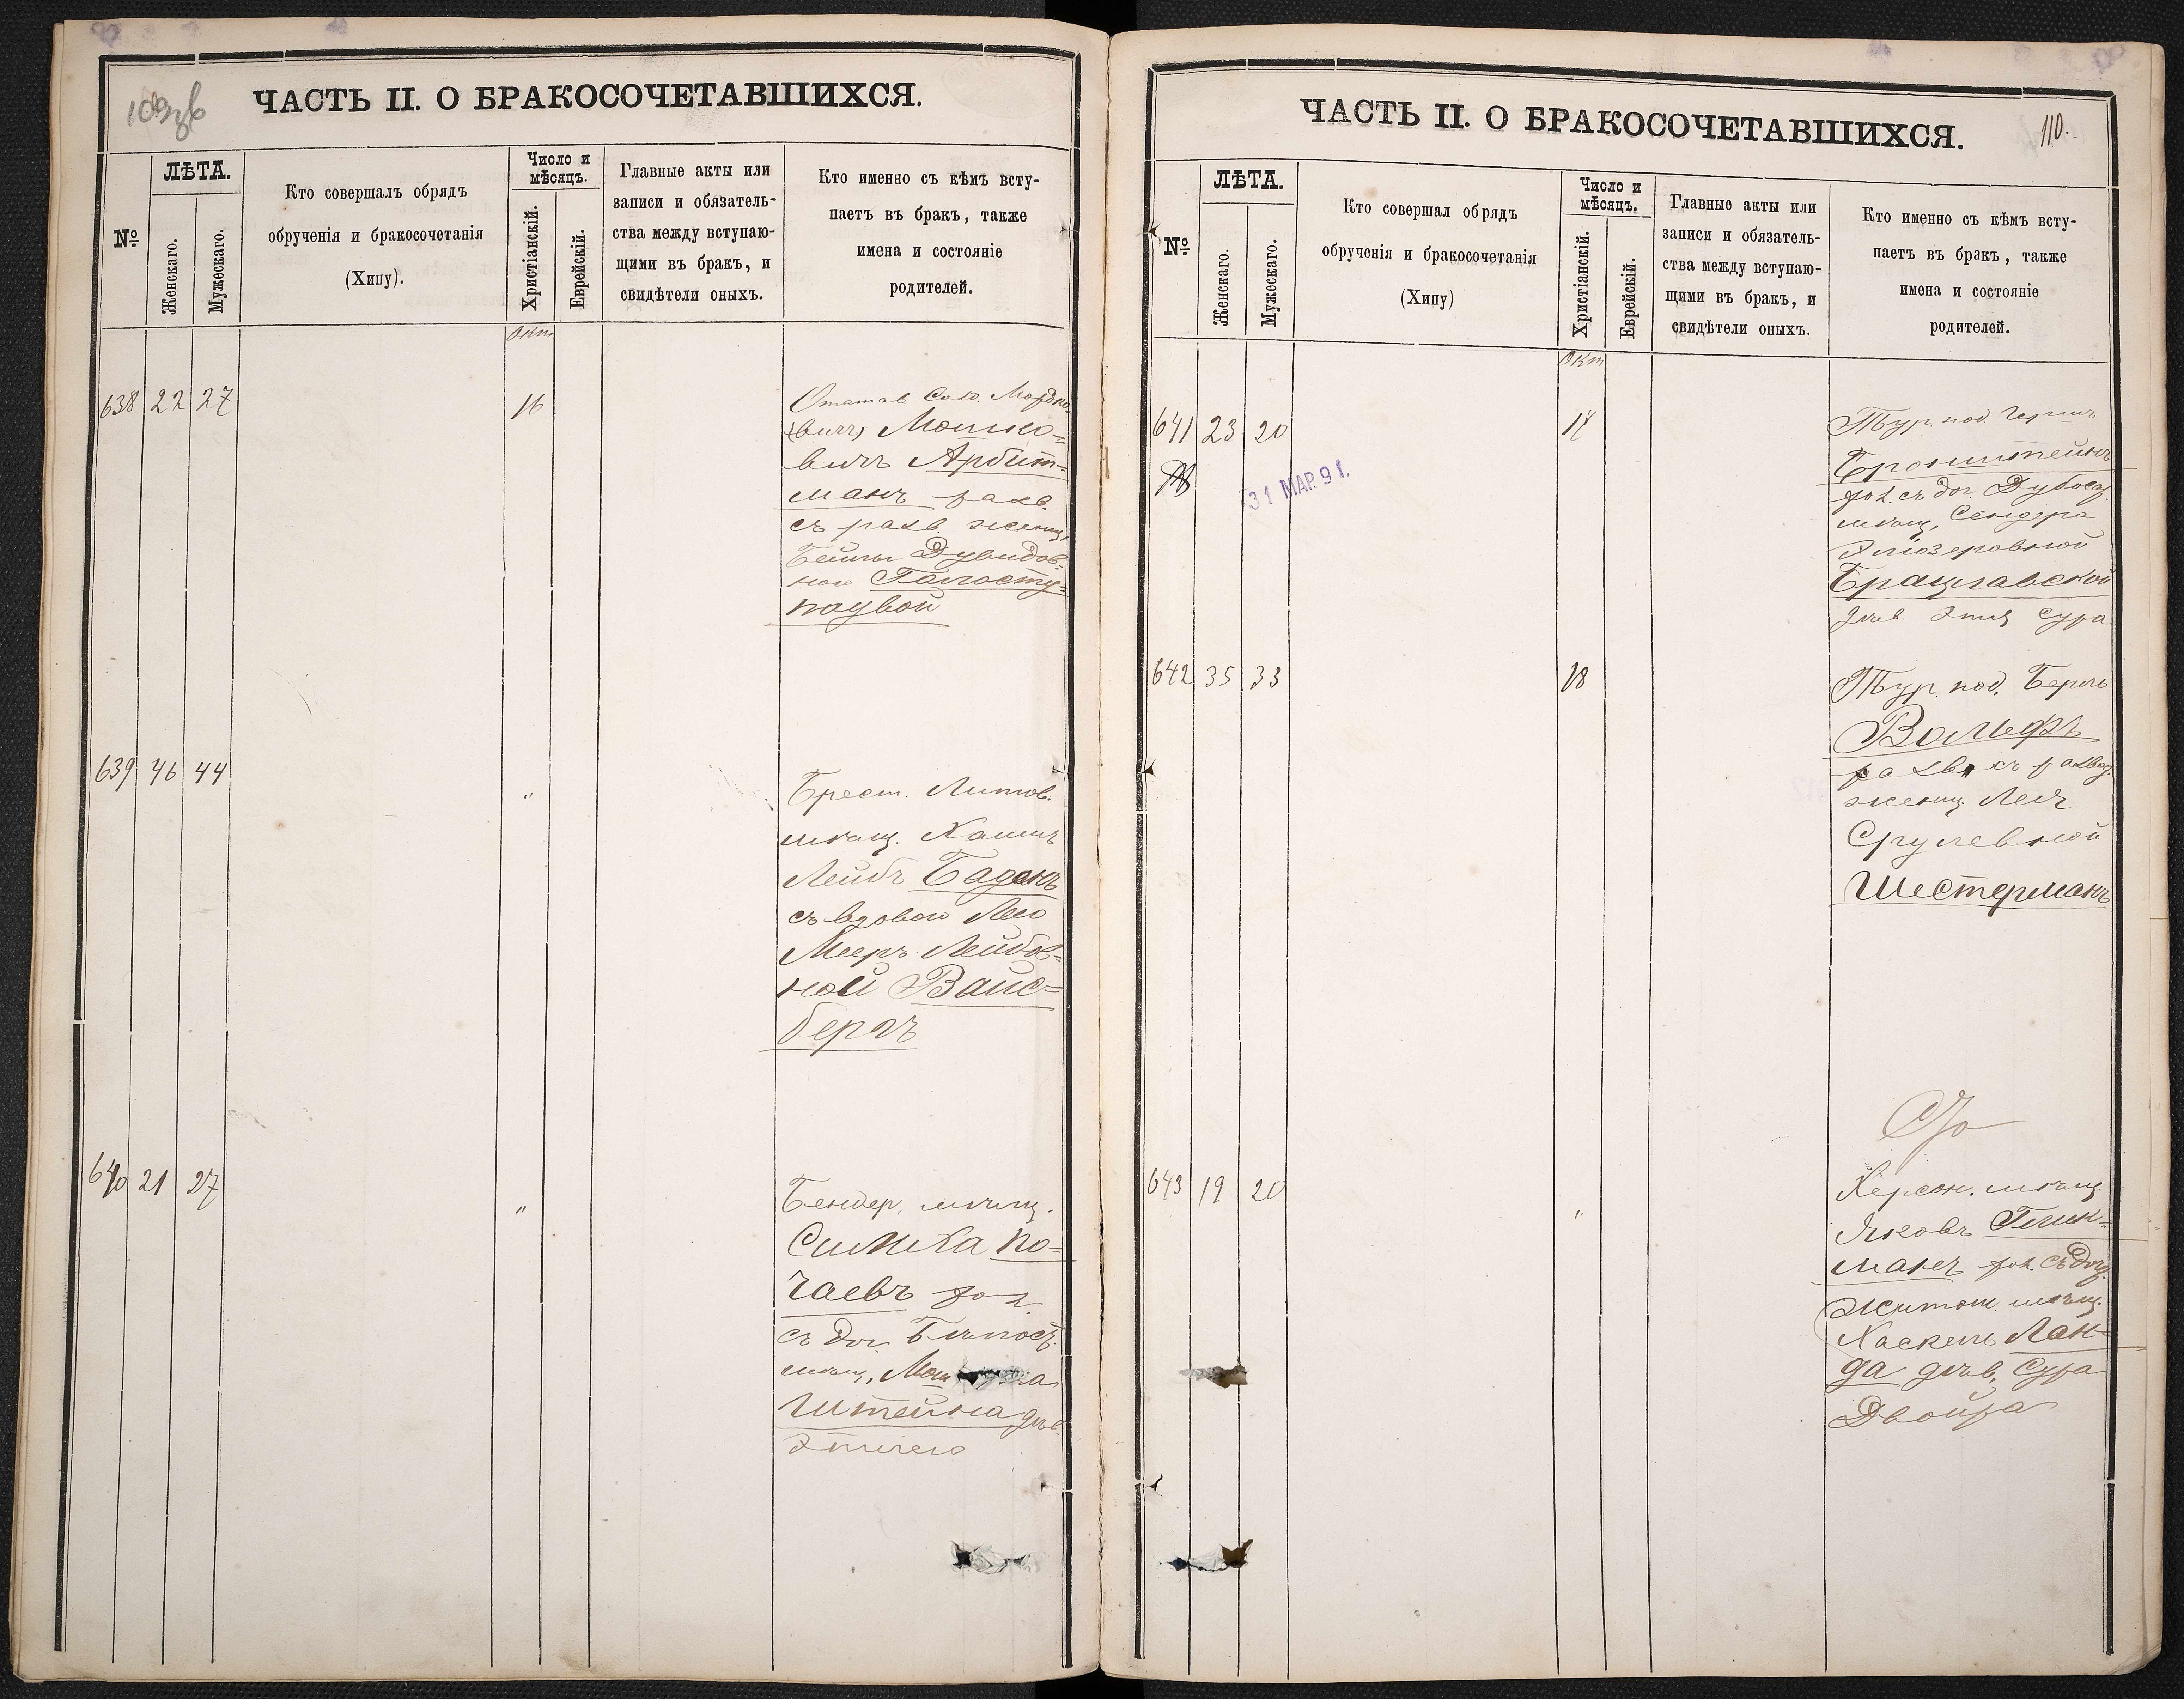 109об
ЧАСТЬ II. О БРАКОСОЧЕТАВШИХСЯ.
№
ЛѢТА.
Женскаго.
Мужескаго.
Кто совершалъ обрядъ
обрученія и бракосочетанія
(Хипу).
Число и
мѣсяцъ.
Христіанскій.
Еврейскій.
Главные акты или
записи и обязатель-
ства между вступаю-
щими въ бракъ, и
свидѣтели оныхъ.
Кто именно съ кѣмъ всту-
паетъ въ бракъ, также
имена и состояніе
родителей.
Окт
638 22 27
16
Отстав. Сол. Мордко
(вичъ) Мошко-
вичъ Арбит-
манъ разв.
съ разв женщ.
Бейлы Дувидов-
ною
639 46 44
"
Брест. Литов.
мѣщ. Хаимъ
Лейбъ Баданъ
съ вдовою Лею
Мееръ Лейбов-
ной Вайс-
бергъ
640 21 27
"
Бендер. мѣщ.
Симха По-
чаевъ хол.
съ доч. Бѣлпост.
мѣщ.
Штейна дѣв.
ЧАСТЬ II. О БРАКОСОЧЕТАВШИХСЯ.
110.
№
ЛѢТА.
Женскаго.
Мужескаго.
Кто совершал обрядъ
обрученія и бракосочетанія
(Хипу)
Число и
мѣсяцъ.
Христіанскій.
Еврейскій.
Главные акты или
записи и обязатель-
ства между вступаю-
щими въ бракъ, и
свидѣтели оныхъ.
Кто именно съ кѣмъ всту-
паетъ въ бракъ, также
имена и состояніе
родителей.
Окт
641 23 20
31 МАР. 91.
17
Тур. под. Гершъ
Бронштейнъ
хол. съ доч. Дубосар.
мѣщ. Сендера
Браславской
дѣв. Сура
642 35 33
18
Тур. под. Берль
Вольфъ
разв. съ развед.
женщ. Лея
Срулевной
Шестерманъ
643 19 20
"
Херсон. мѣщ.
Яковъ Глик-
манъ хол. съ доч.
Житом. мѣщ.
Хаскель Лан-
да дѣв. Сура
Двойра